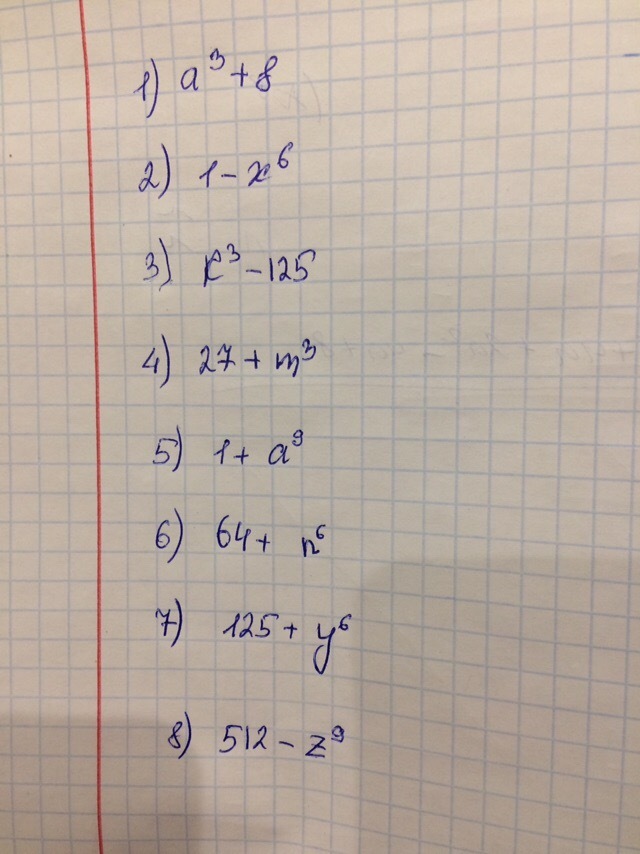 1) a³ + 8
2) 1 - x⁶
3) k³ - 125
4) 27 + m³
5) 1 + a⁹
6) 64 + n⁶
7) 125 + y⁶
8) 512 - z⁹